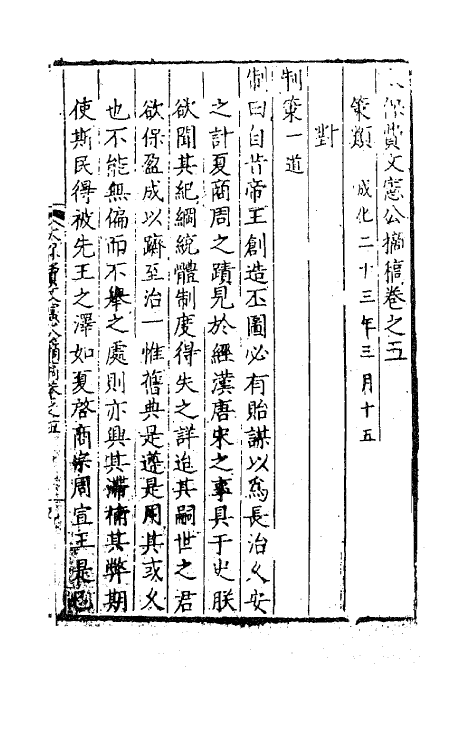 太保費文憲公摘稿卷之五
策類 成化二十三年三月十五
對
制策一道
制曰自昔帝王創造丕圖必有貽謀以為長治久安
之計夏商周之蹟見於經漢唐宋之事具于史朕
欲聞其紀綱統體制度得失之詳迨其嗣世之君
欲保盈成以躋至治一惟舊典是遵是用其或久
也不能無偏而不舉之處則亦興其滯補其弊期
使斯民得被先王之澤如夏啓商宗周宣王是已
太保費文憲公摘稿卷之五